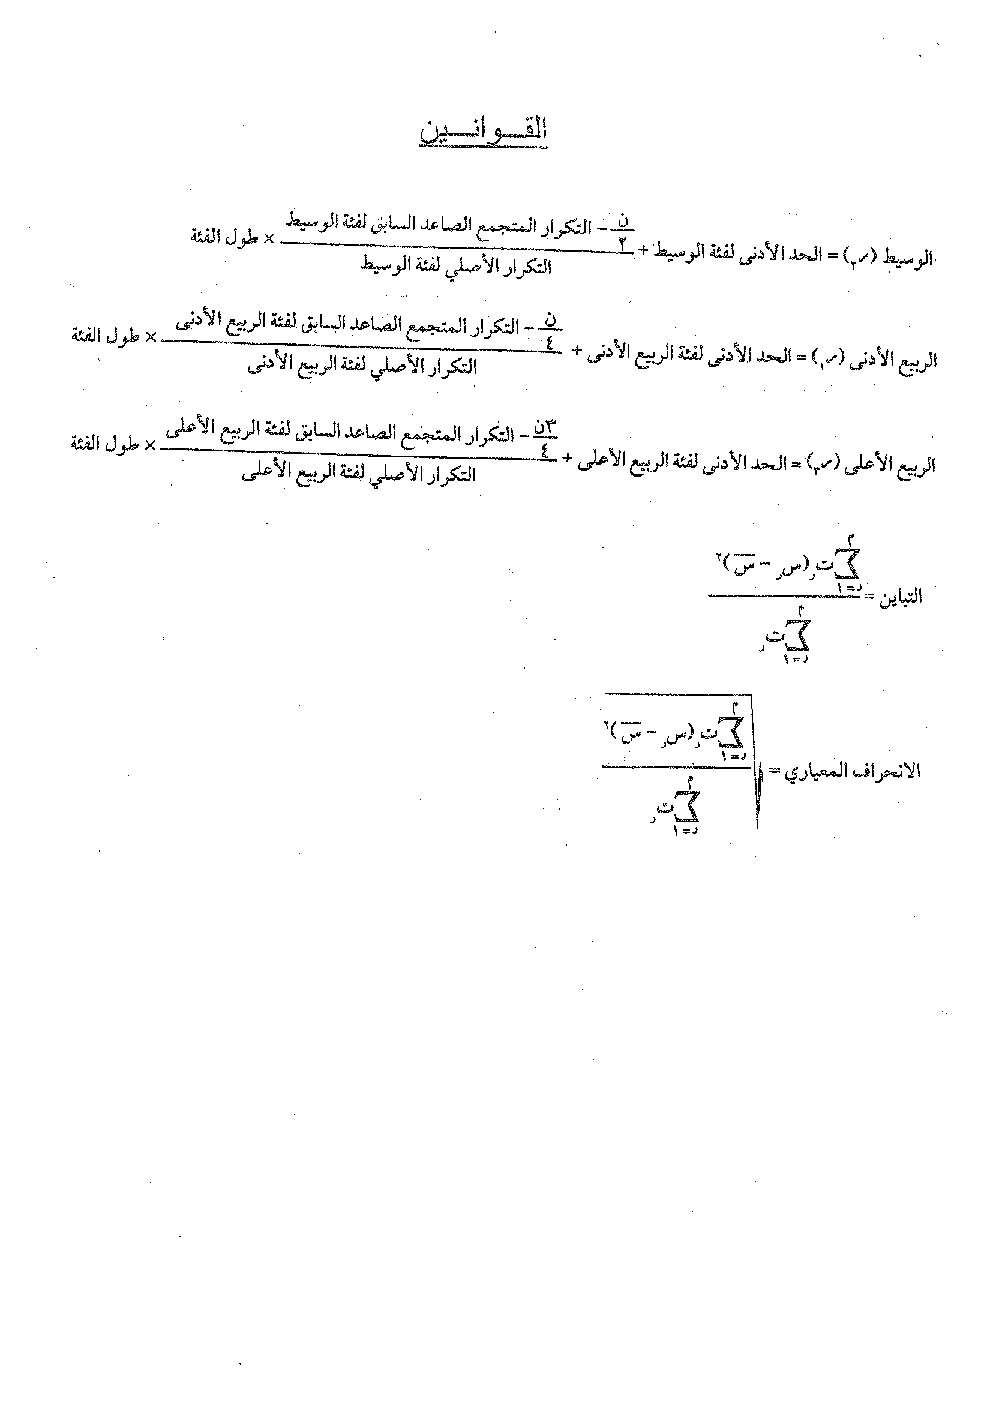 القوانين
الوسيط (ر٢) = الحد الأدنى لفئة الوسيط + (ن/٢ - التكرار المتجمع الصاعد السابق لفئة الوسيط) / (التكرار الأصلي لفئة الوسيط) × طول الفئة
الربيع الأدنى (ر١) = الحد الأدنى لفئة الربيع الأدنى + (ن/٤ - التكرار المتجمع الصاعد السابق لفئة الربيع الأدنى) / (التكرار الأصلي لفئة الربيع الأدنى) × طول الفئة
الربيع الأعلى (ر٣) = الحد الأدنى لفئة الربيع الأعلى + (٣ن/٤ - التكرار المتجمع الصاعد السابق لفئة الربيع الأعلى) / (التكرار الأصلي لفئة الربيع الأعلى) × طول الفئة
التباين = م∑ر=١ ت ر (س ر - س̅)٢ / م∑ر=١ ت ر
الانحراف المعياري = √(م∑ر=١ ت ر (س ر - س̅)٢ / م∑ر=١ ت ر)